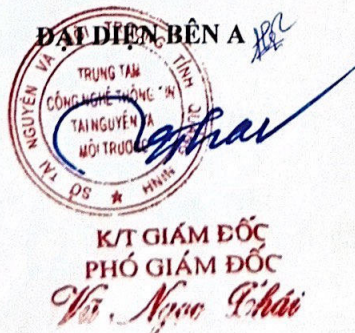 ĐẠI DIỆN BÊN A
SỞ TÀI NGUYÊN VÀ TỈNH NINH
TRUNG TÂM
CÔNG NGHỆ THÔNG TIN
TÀI NGUYÊN VÀ
MÔI TRƯỜNG
K/T GIÁM ĐỐC
PHÓ GIÁM ĐỐC
Vũ Ngọc Thái